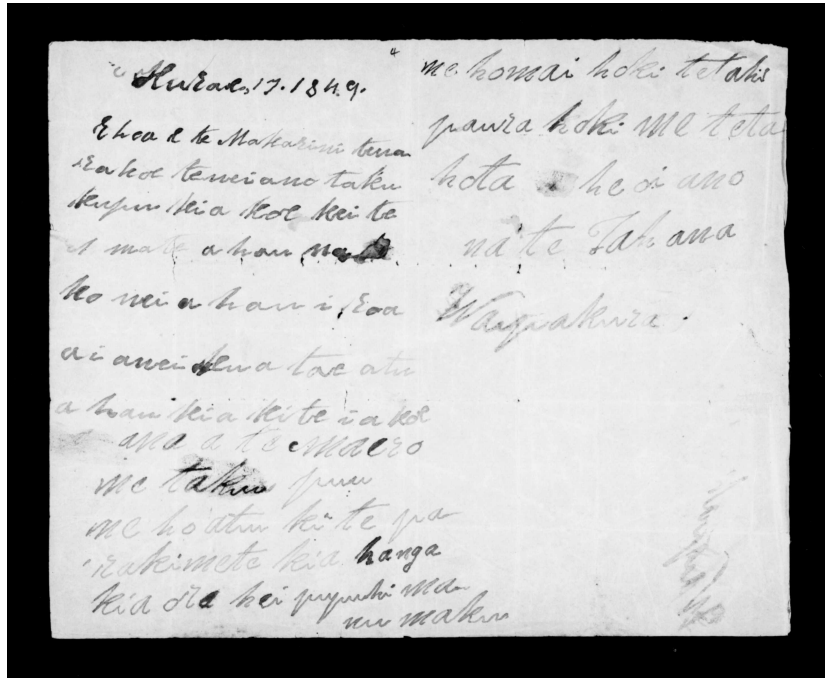 Hurae, 17. 1849.
E hoa e te Makarini tena
ra koe tenei ano taku
kupu kia koe kei te
mate ahau na
ko nei a hau i roa
ai anei kua tae atu
a hau kia kite i a koe
ana a te maero
me taku puu
me hoatu ki te pa
rakimete kia hanga
kia ora hei pupuhi ma
nu maku
me homai hoki tetahi
paura hoki me teta
hota heoi ano
na te Tahana
Wangakura.